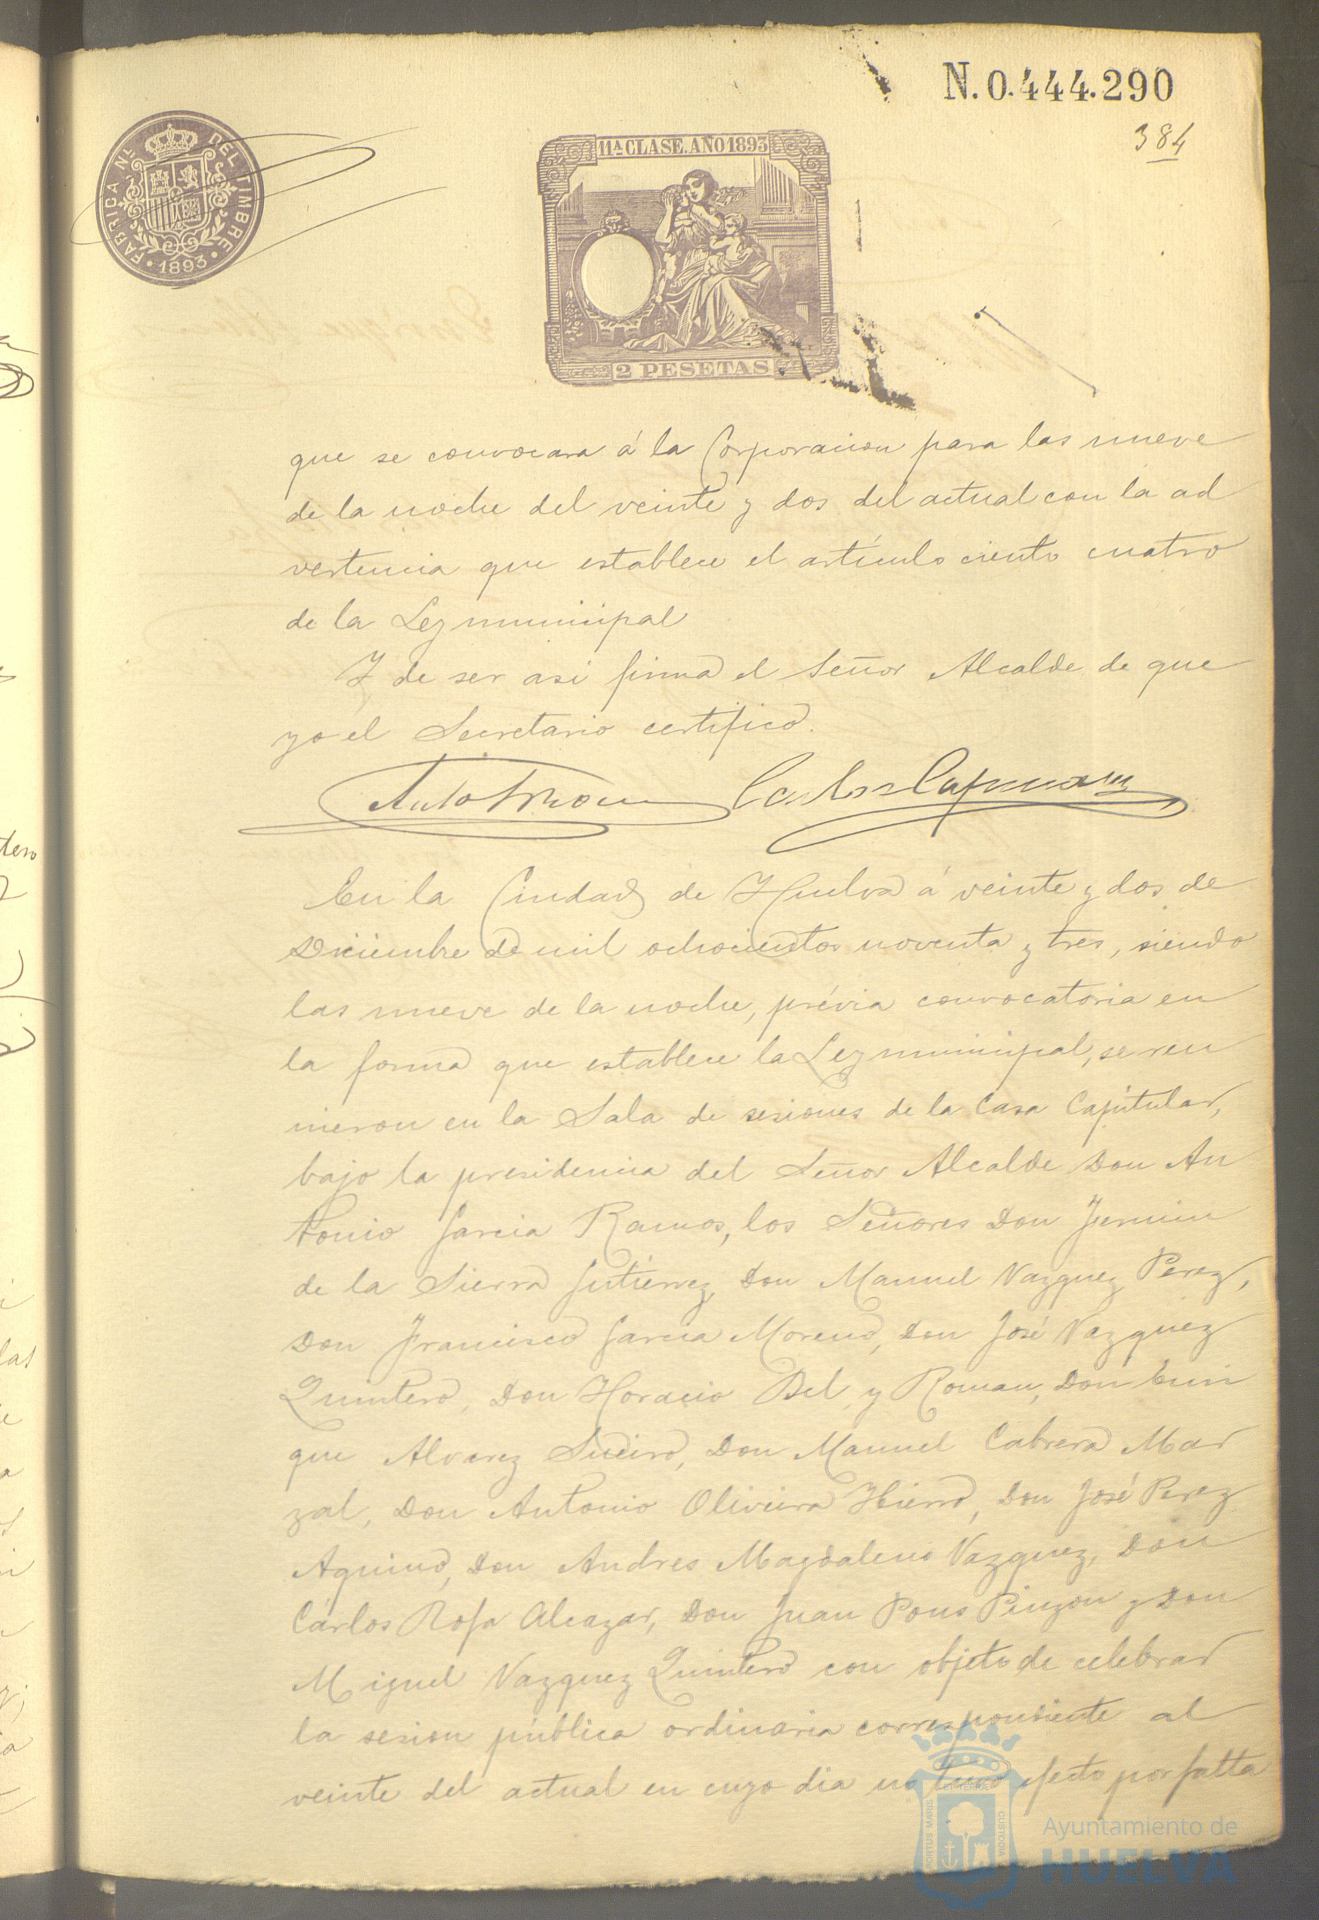 N. 0.444.290
384
FABRICA NL. DEL TIMBRE
1893
11ª CLASE. AÑO 1893
2 PESETAS
que se convocara á la Corporacion para las nueve
de la noche del veinte y dos del actual con la ad
vertencia que establece el artículo ciento cuatro
de la Ley municipal
Y de ser asi firma el Señor Alcalde de que
yo el Secretario certifico.
En la Ciudad de Huelva á veinte y dos de
Diciembre de mil ochocientos noventa y tres, siendo
las nueve de la noche, prévia convocatoria en
la forma que establece la Ley municipal, se reu
nieron en la Sala de sesiones de la Casa Capitular,
bajo la presidencia del Señor Alcalde Don An
tonio Garcia Ramos, los Señores Don Fermin
de la Sierra Gutierrez, Don Manuel Vazquez Perez,
Don Francisco Garcia Moreno, Don José Vazquez
Quintero, Don Horacio Bel y Roman, Don Enri
que Alvarez Sueiro, Don Manuel Cabrera Mar
zal, Don Antonio Oliveira Hierro, Don José Perez
Aquino, Don Andres Magdaleno Vazquez, Don
Cárlos Rofa Alcazar, Don Juan Pons Pinzon y Don
Miguel Vazquez Quintero con objeto de celebrar
la sesion pública ordinaria correspondiente al
veinte del actual en cuyo dia no tuvo efecto por falta
PORTUS MARIS CUSTODIA
Ayuntamiento de
HUELVA